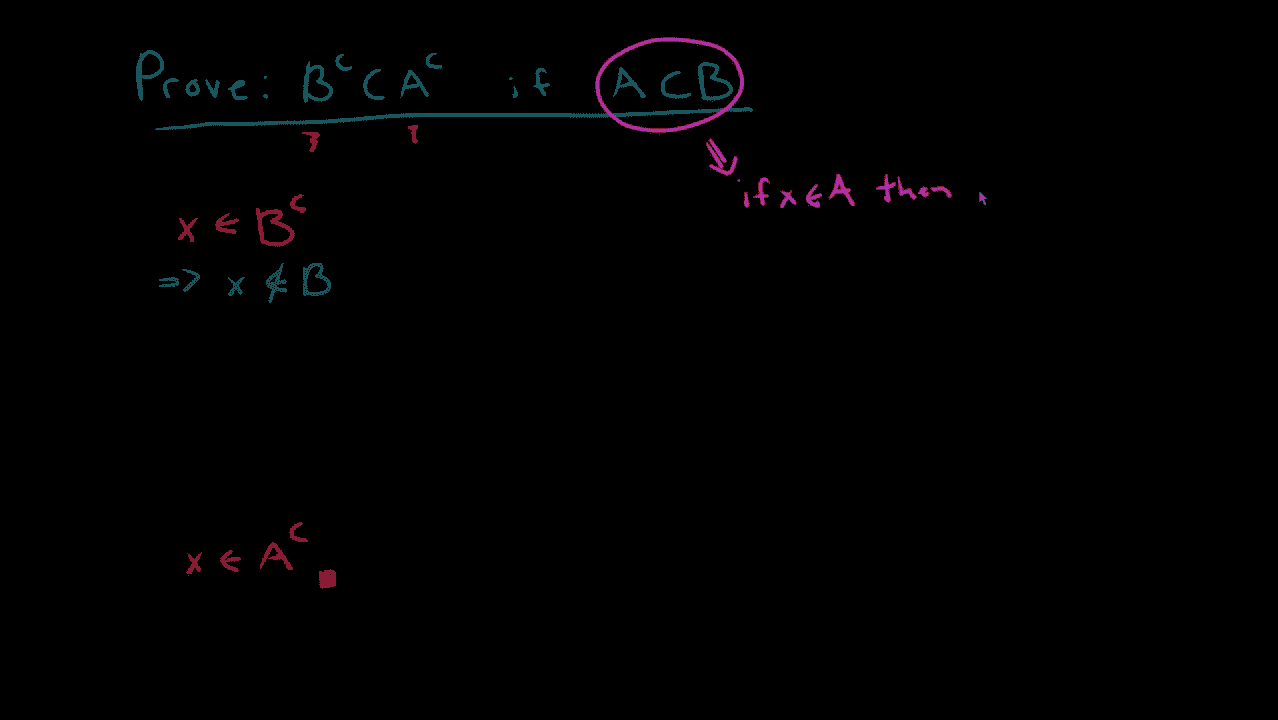 Prove: Bᶜ ⊂ Aᶜ if A ⊂ B
⇒ if x ∈ A then
x ∈ Bᶜ
⇒ x ∉ B
x ∈ Aᶜ ■